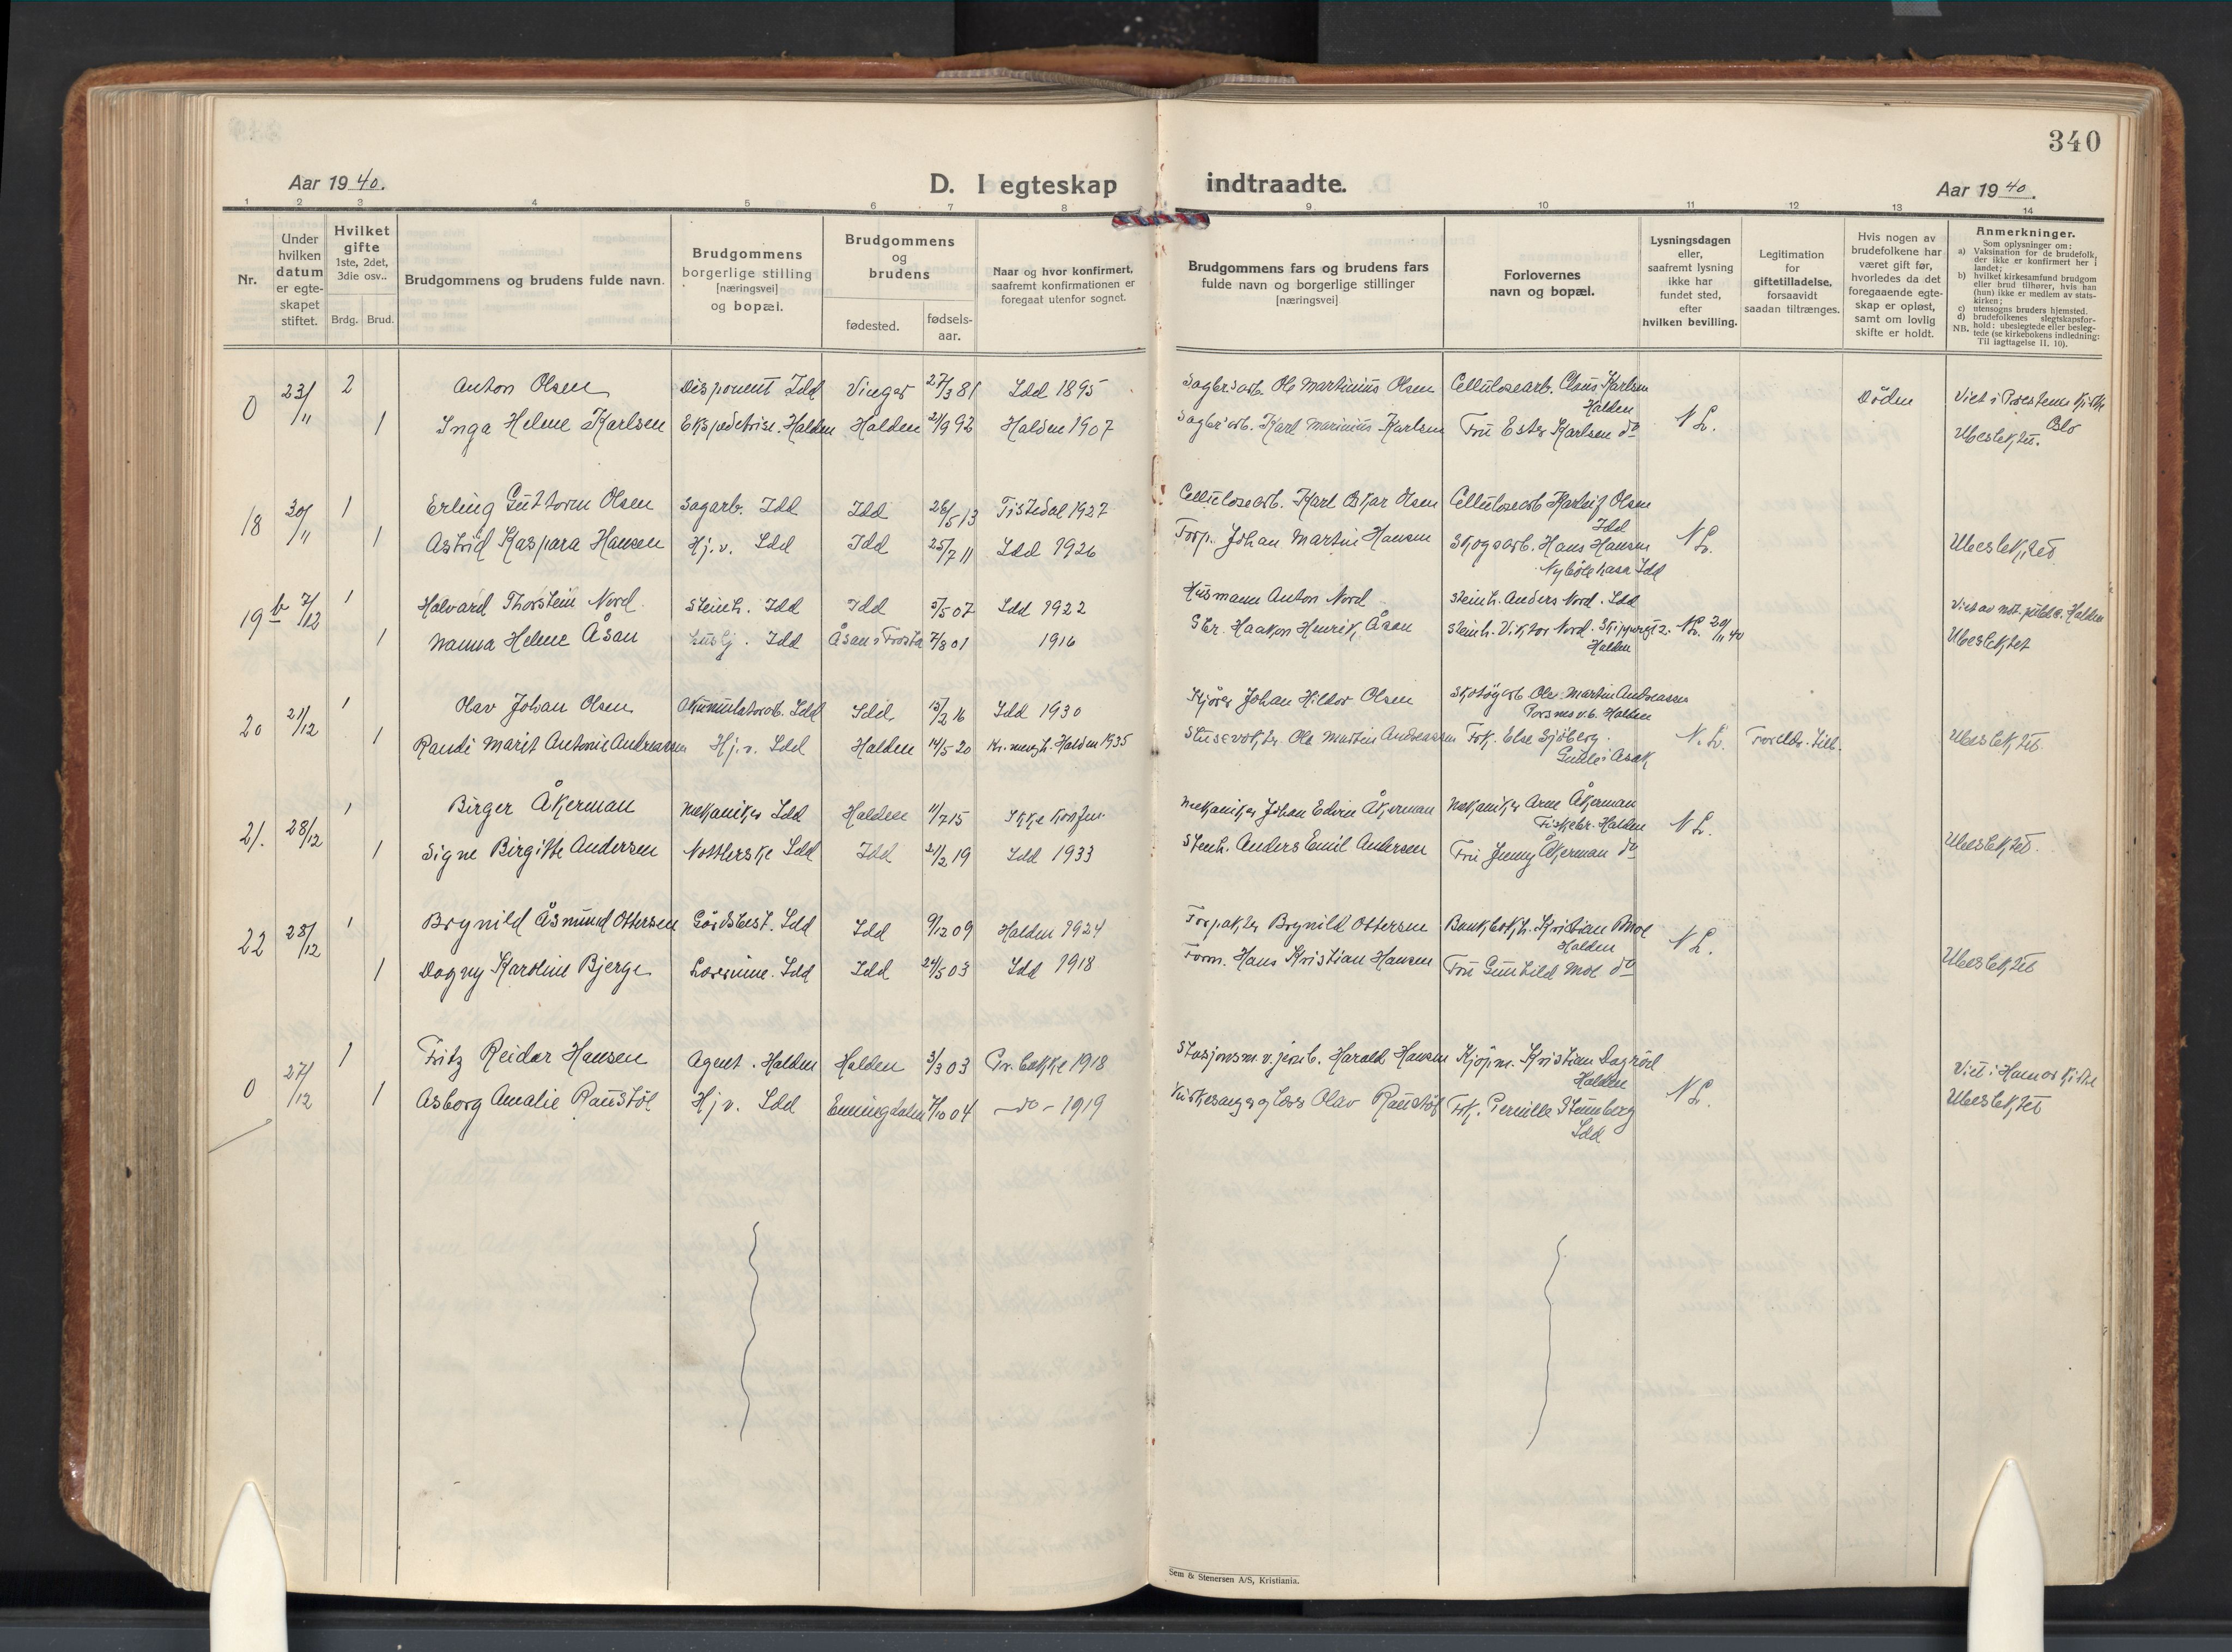 340
Aar 1940.
D. I egteskap indtraadte.
Aar 1940.
1 2 3 4 5 6 7 8 9 10 11 12 13 14
Nr.
Under hvilken datum er egteskapet stiftet.
Hvilket gifte 1ste, 2det, 3die osv..
Brdg. Brud.
Brudgommens og brudens fulde navn.
Brudgommens borgerlige stilling [næringsvei] og bopæl.
Brudgommens og brudens
fødested.
fødsels-aar.
Naar og hvor konfirmert, saafremt konfirmationen er foregaat utenfor sognet.
Brudgommens fars og brudens fars fulde navn og borgerlige stillinger [næringsvei]
Forlovernes navn og bopæl.
Lysningsdagen eller, saafremt lysning ikke har fundet sted, efter hvilken bevilling.
Legitimation for giftetilladelse, forsaavidt saadan tiltrænges.
Hvis nogen av brudefolkene har været gift før, hvorledes da det foregaaende egteskap er opløst, samt om lovlig skifte er holdt.
Anmerkninger.
Som oplysninger om:
a) Vaksination for de brudefolk, der ikke er konfirmert her i landet;
b) hvilket kirkesamfund brudgom eller brud tilhører, hvis han (hun) ikke er medlem av statskirken;
c) utensogns bruders hjemsted.
d) brudefolkenes slegtskapsforhold: ubeslegtede eller beslegtede (se kirkebokens indledning: Til iagttagelse II. 10).
NB.
0 23/11 2 Anton Olsen Disponent Idd Vinger 27/3 81 Idd 1895 Sagbr.arb. Ole Martinius Olsen Cellulosearb. Claus Karlsen Halden N L. Døden Viet i Prestenes Kirke Oslo
1 Inga Helene Karlsen Ekspeditrise. Halden Halden 21/9 92 Halden 1907 Sagbr.arb. Karl Marinius Karlsen Fru Ester Karlsen do Ubeslektet.
18 30/11 1 Erling Guttorm Olsen Sagarb. Idd Idd 26/5 13 Tistedal 1927 Cellulosearb. Karl Oskar Olsen Cellulosearb Olsen Idd N L.
1 Astrid Kaspara Hansen Hj.v. Idd Idd 25/7 11 Idd 1926 Forp. Johan Martin Hansen Skogsarb. Hans Hansen Idd Ubeslektet
19 b 7/12 1 Halvard Thorstein Nord Steinh. Idd Idd 5/5 07 Idd 1922 Husmann Anton Nord Steinh. Anders Nord. Idd Viet av not. publ. Halden
1 Nanna Helene Åsan Husbj. Idd Åsan i Frosta 7/8 01 1916 Gbr. Haakon Henrik Åsan Steinh. Viktor Nord. Skippergt 2. Halden N L. 20/11 40 Ubeslektet
20 21/12 1 Olav Johan Olsen Akumulatorarb. Idd Idd 15/2 16 Idd 1930 Kjører Johan Hilder Olsen Skotøyarb. Ole Martin Andreassen Halden
1 Randi Marit Antonie Andreassen Hj.v. Idd Halden 14/5 20 Halden 1935 Slusevokter Ole Martin Andreassen Frk. Else Sjøberg. Asak N. L. Foreldr. till. Ubeslektet
21. 28/12 1 Birger Åkerman Mekaniker Idd Halden 11/7 15 Ikke konfir. Mekaniker Johan Edvin Åkerman Mekaniker Arne Åkerman Fiskebr. Halden N L.
1 Signe Birgitte Andersen Idd Idd 21/2 19 Idd 1933 Stenh. Anders Emil Andersen Fru Jenny Åkerman do Ubeslektet.
22 28/12 1 Brynild Åsmund Ottersen Gårdsbest. Idd Idd 9/12 09 Halden 1924 Forpakter Brynild Ottersen Bankbokh. Kristian Moe Halden N L.
1 Dagny Karoline Bjerge Lærerinne. Idd Idd 24/5 03 Idd 1918 Form. Hans Kristian Hansen Fru Gunhild Moe do Ubeslektet
0 27/12 1 Fritz Reidar Hansen Agent. Halden Halden 3/3 03 Pr. bakke 1918 Stasjonsm. v. jernb. Harald Hansen Kjøpm. Kristian Dagrød Halden N L. Viet i Hamar Kirke
1 Asborg Amalie Raustøl Hj v. Idd Enningdalen 7/10 04 - do - 1919 Kirkesanger og lærer Olav Raustøl Frk. Pernille Stumberg Idd Ubeslektet
Sem & Stenersen A/S, Kristiania.